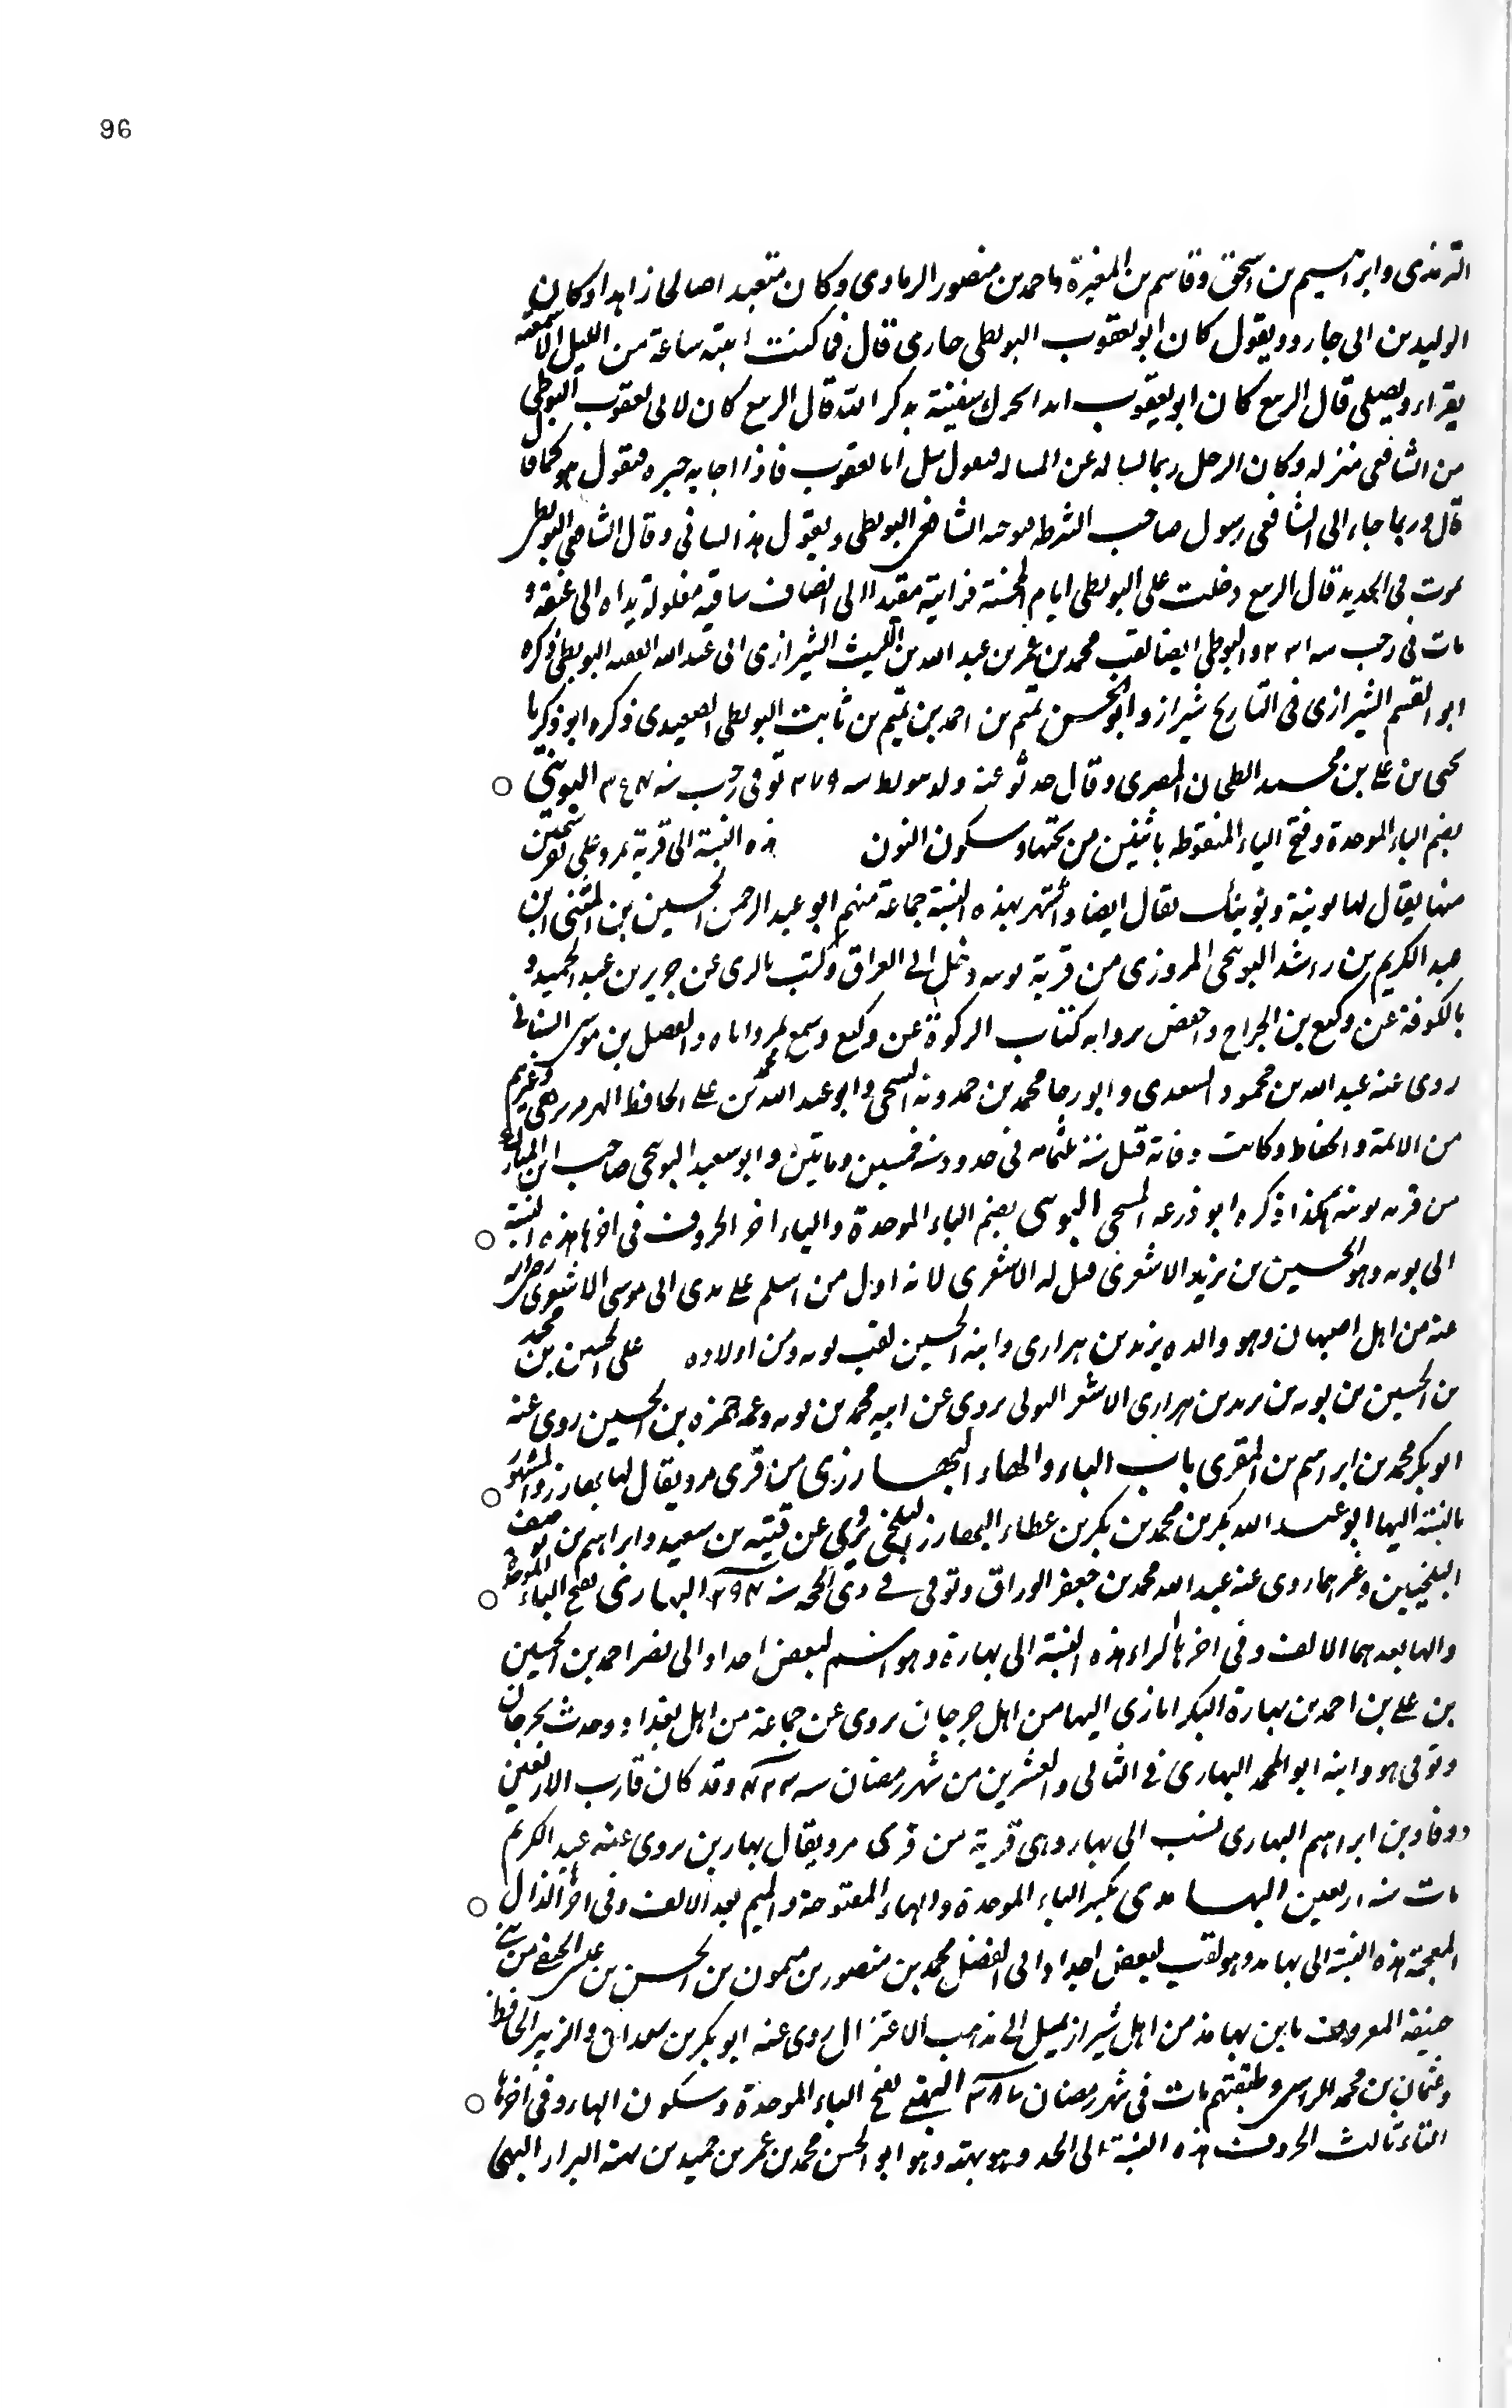 96
الترمذى وابراهيم بن اسحق وقاسم بن المغيرة واحمد بن منصور الرمادى وكان متعبدا صالحا زاهدا وكان
الوليد بن ابى جارود يقول كان ابو يعقوب البويطى جارى قال فما كنت انتبه ساعة من الليل الا سمعته
يقراء ويصلى قال الربيع كان ابو يعقوب ابدا يحرك شفتيه بذكر الله قال الربيع كان لابى يعقوب البويطى
من الشافعى منزله وكان الرجل ربما يساله عن المساله فيقول سل ابا يعقوب فاذا اجابه خبره فيقول هو كما قال
قال وربما جاء الى الشافعى رسول صاحب الشرطه فيوجه الشافعى البويطى ويقول هذا لسانى وقال الشافعى البويطى
يموت فى الحديد قال الربيع دخلت على البويطى ايام المحنة فرايته مقيدا الى انصاف ساقيه مغلولة يداه الى عنقه و
مات فى رجب سنه ٢٣١ والبويطى ايضا لقب محمد بن عمر بن عبد الله بن الليث الشيرازى ابى عبد الله الفقيه البويطى ذكره
ابو القسم الشيرازى فى التاريخ شيراز وابو الحسن تميم بن احمد بن تميم بن ثابت البويطى الصعيدى ذكره ابو زكريا
يحيى بن على بن محمد الطحان المصرى وقال حدثو عنه ولد ببويط سنه ٢٧٩ توفى رجب سنه ٣٤٧ البوينجى
بضم الباء الموحدة وفتح الياء المنقوطه باثنين من تحتها وسكون النون هذه النسبة الى قرية بمرو على فرسخين
منها يقال لها بوينة وبوينك يقال ايضا واشتهر بهذه النسبة جماعة منهم ابو عبد الرحمن الحسين بن المثنى ابن
عبد الكريم بن راشد البوينجى المروزى من قرية بوينه دخل الى العراق وكتب بالرى عن جرير بن عبد الحميد و
بالكوفة عن وكيع بن الجراح وبعض رواية كتاب الزكوة عن وكيع وسمع بمرو اباه والفضل بن موسى السينانى
روى عنه عبد الله بن محمود السعدى وابو رجا محمد بن حمدويه السنجى وابو عبد الله محمد بن على الحافظ وغيرهم
من الائمة والحفاظ وكانت وفاته قبل سنه فى حدود سنه خمسين ومايتين وابو سعيد البوينجى صاحب ابن المبارك
من قريه بوينه هكذا ذكره ابو زرعه السنجى البويى بضم الباء الموحدة والياء اخر الحروف فى اخرها هذه النسبة
الى بويه وهو الحسين بن يزيد الاشعرى قيل له الاشعرى لانه اول من اسلم على يدى ابى موسى الاشعرى رضى الله
عنه من اهل اصبهان وهو والده يزيد بن هزارى وابنه الحسين لقب بويه ومن اولاده على الحسن بن محمد
بن الحسين بن بويه بن يزيد بن هزارى الاشعرى البويى يروى عن ابيه محمد بن بويه وعمه حمزه بن الحسين روى عنه
ابو بكر محمد بن ابراهيم بن المقرى باب الباء والهاء البهارزى من قرى مرو يقال لها بهارزه والمشهور
بالنسبة اليها ابو عبد الله بكر بن محمد بن بكر بن عطاء البهارزى البلخى يروى عن قتيبه بن سعيد وابراهيم بن يوسف
البلخيين وغيرهما روى عنه عبد الله محمد بن جعفر الوراق وتوفى فى ذى الحجه سنه ٢٩٤ البهارى بفتح الباء الموحدة
والها بعدهما الالف وفى اخرها الراء هذه النسبة الى بهارة وهو اسم لبعض اجداد ابى نصر احمد بن الحسين
بن على بن احمد بن بهارة البكراباذى البهارى من اهل جرجان يروى عن جماعة من اهل بغداد وحدث بجرجان
وتوفى هو وابنه ابو المحمد البهارى فى الثانى والعشرين من شهر رمضان سنه ٤٢٣ وقد كان قارب الاربعين
ورقاد بن ابراهيم البهارى نسب الى بهار وهى قرية من قرى مرو يقال بهارين روى عنه عبد الكريم
مات سنه اربعين البهامذى بكسر الباء الموحدة والهاء المفتوحة والميم بعد الالف وفى اخرها الذال
المعجمة هذه النسبة الى بهامذ وهو لقب لبعض اجداد ابى الفضل محمد بن منصور بن ميمون بن الحسن بن عيسى الحنفى من بنى
حنيفة المعروف بابن بهامذ من اهل شيراز يميل الى مذهب الاعتزال روى عنه ابو بكر بن سعدان والزبير الحافظ
وعثمان بن محمد الراسى وطبقتهم مات فى شهر رمضان البهتى بفتح الباء الموحدة وسكون الهاء وفى اخرها
التاء ثالث الحروف هذه النسبة الى الجد وهو بهته وهو ابو الحسن محمد بن عمر بن حميد بن بهتة البزاز البهتى